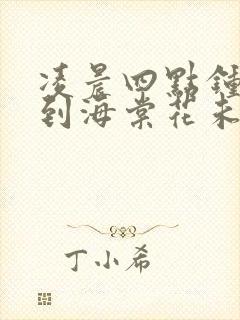 凌晨四點鐘
到海棠花未
丁小希